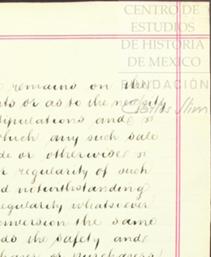 CENTRO DE
ESTUDIOS
DE HISTORIA
DE MEXICO
FUNDACIÓN
Carlos Slim
remains on the
or as to the necessity
stipulations and s
which any such sale
de or otherwise s
r regularity of such
d notwithstanding
regularity whatsoever
onversion the same
do the safety and
chaser or purchasers